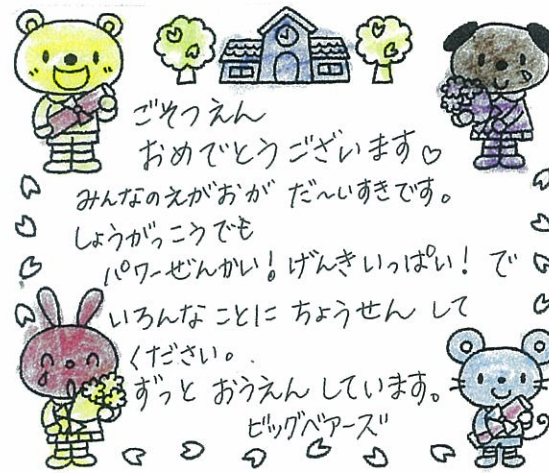 ごそつえん
おめでとうございます♡
みんなのえがおが だ〜いすきです。
しょうがっこうでも
パワーぜんかい！げんきいっぱい！で
いろんなことに ちょうせん して
ください。
ずっと おうえん しています。
ビッグベアーズ